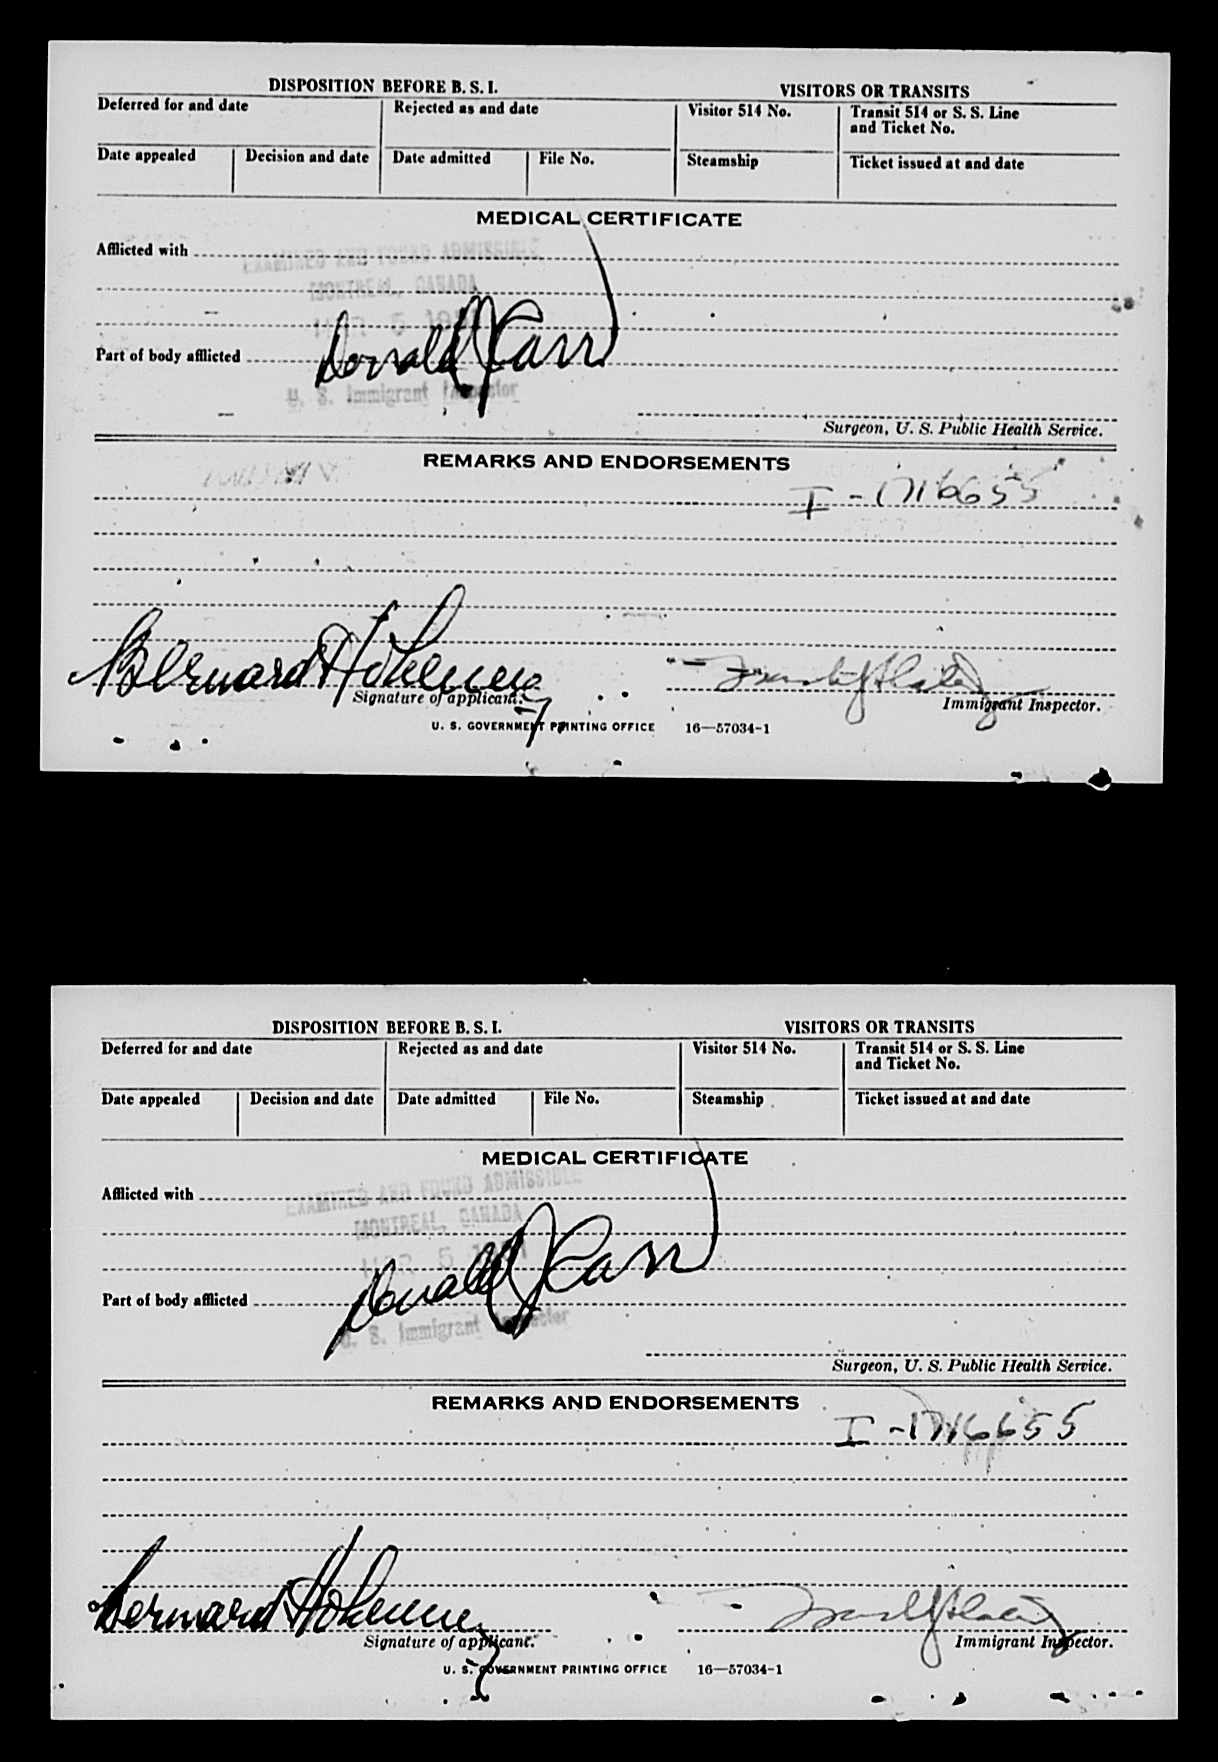 DISPOSITION BEFORE B. S. I.
VISITORS OR TRANSITS
Deferred for and date
Rejected as and date
Visitor 514 No.
Transit 514 or S. S. Line
and Ticket No.
Date appealed
Decision and date
Date admitted
File No.
Steamship
Ticket issued at and date
MEDICAL CERTIFICATE
Afflicted with
EXAMINED AND FOUND ADMISSIBLE
MONTREAL, CANADA
MAR 5
Donald J Carr
Part of body afflicted
U. S. Immigrant Inspector
Surgeon, U. S. Public Health Service.
REMARKS AND ENDORSEMENTS
I-1716655
Bernard
Signature of applicant.
Immigrant Inspector.
U. S. GOVERNMENT PRINTING OFFICE 16—57034-1
DISPOSITION BEFORE B. S. I.
VISITORS OR TRANSITS
Deferred for and date
Rejected as and date
Visitor 514 No.
Transit 514 or S. S. Line
and Ticket No.
Date appealed
Decision and date
Date admitted
File No.
Steamship
Ticket issued at and date
MEDICAL CERTIFICATE
Afflicted with
EXAMINED AND FOUND ADMISSIBLE
MONTREAL, CANADA
MAR 5
Donald J Carr
Part of body afflicted
U. S. Immigrant Inspector
Surgeon, U. S. Public Health Service.
REMARKS AND ENDORSEMENTS
I-1716655
Bernard
Signature of applicant.
Immigrant Inspector.
U. S. GOVERNMENT PRINTING OFFICE 16—57034-1